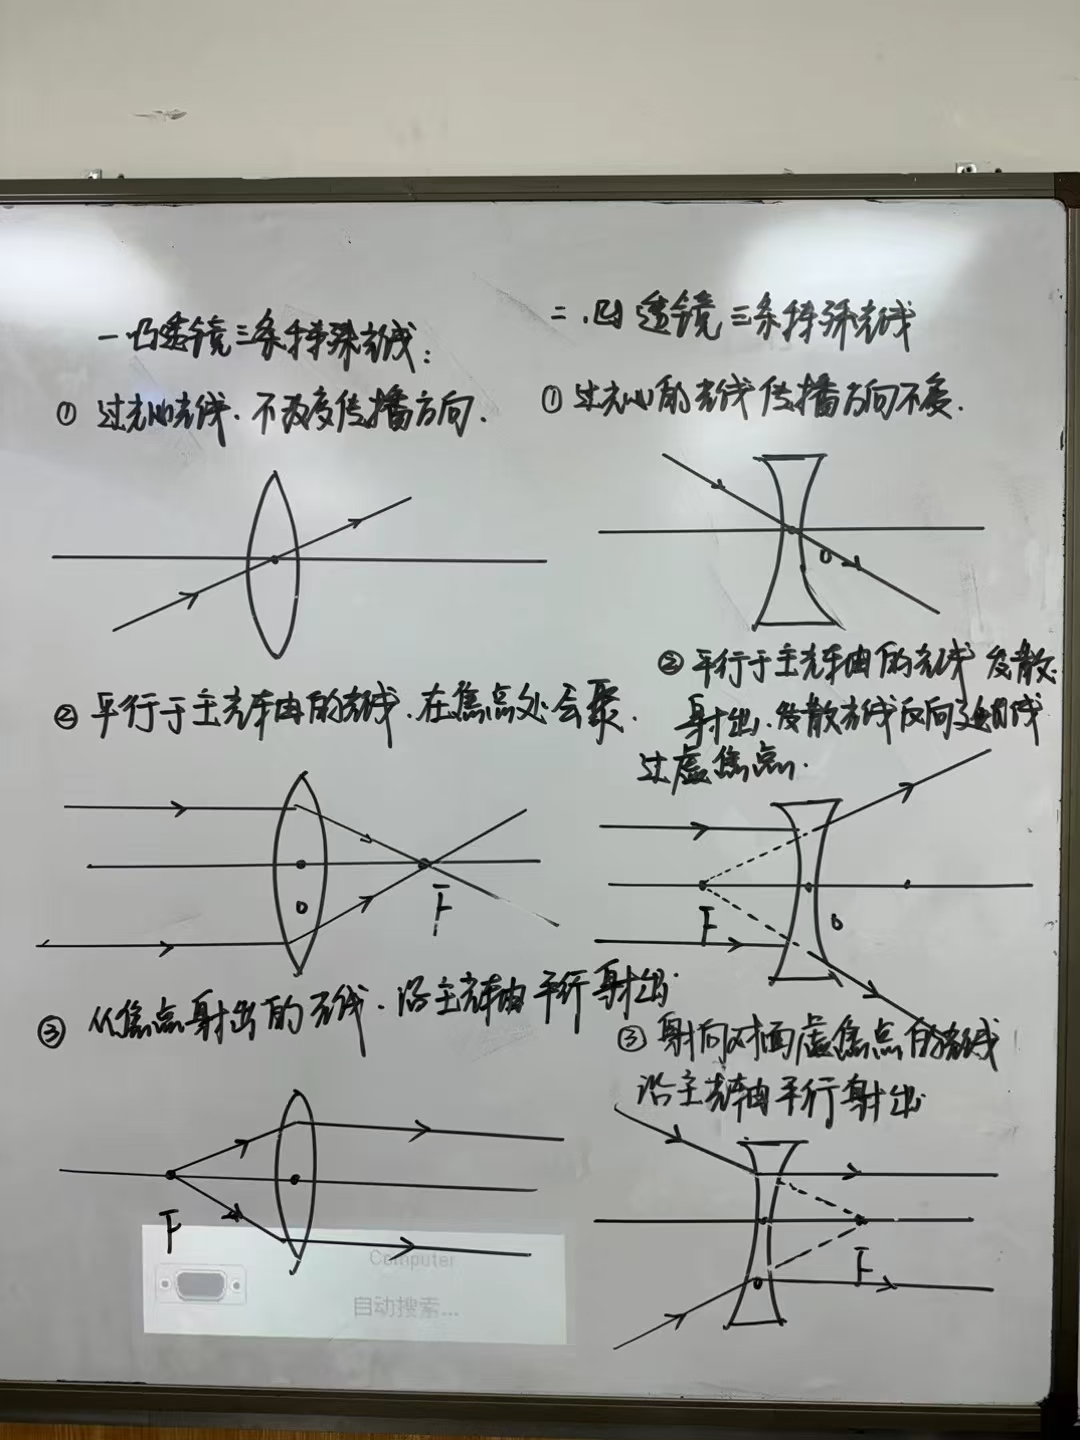 一凸透镜三条特殊光线:
① 过光心光线.不改变传播方向.
② 平行于主光轴的光线.在焦点处会聚.
O
F
③ 从焦点射出的光线.沿主光轴平行射出.
F
Computer
自动搜索...
二.凹透镜三条特殊光线
① 过光心的光线传播方向不变.
O
② 平行于主光轴的光线 发散
射出.发散光线反向延长线
过虚焦点.
F
O
③ 射向对面虚焦点的光线
沿主光轴平行射出
F
O